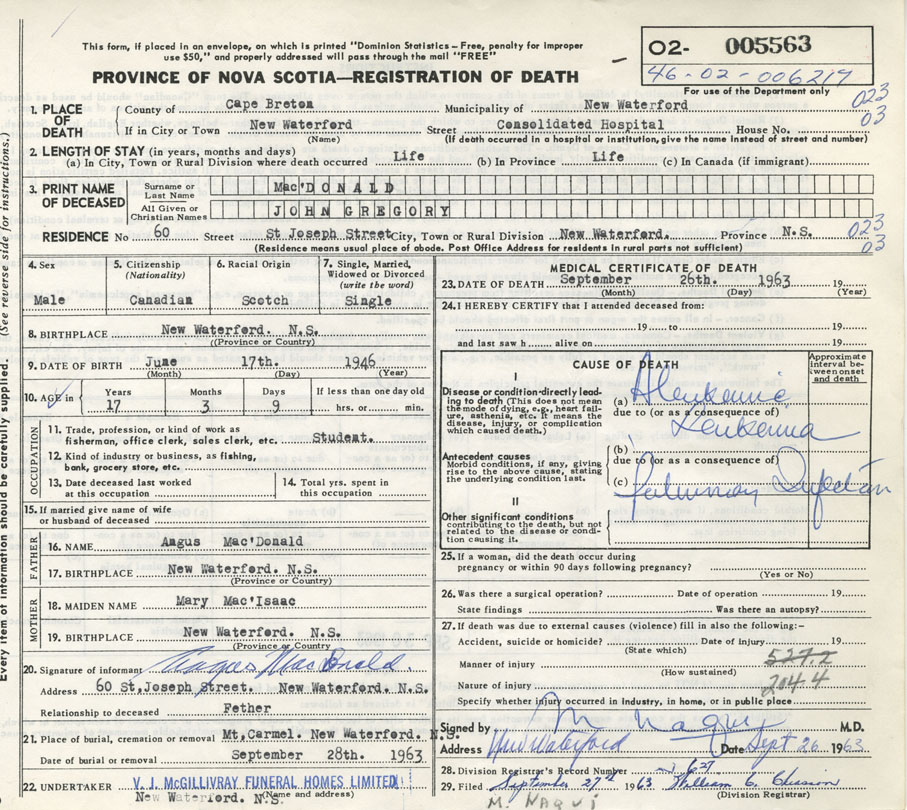 This form, if placed in an envelope, on which is printed "Dominion Statistics—Free, penalty for improper
use $50," and properly addressed will pass through the mail "FREE"
PROVINCE OF NOVA SCOTIA—REGISTRATION OF DEATH
02- 005563
46-02-006217
For use of the Department only
023
03
1. PLACE OF DEATH County of Cape Breton Municipality of New Waterford
If in City or Town New Waterford Street Consolidated Hospital House No.
(Name) (If death occurred in a hospital or institution, give the name instead of street and number)
2. LENGTH OF STAY (in years, months and days)
(a) In City, Town or Rural Division where death occurred Life (b) In Province Life (c) In Canada (if immigrant)
3. PRINT NAME OF DECEASED Surname or Last Name Mac'DONALD
All Given or Christian Names JOHN GREGORY
RESIDENCE No 60 Street St Joseph Street City, Town or Rural Division New Waterford. Province N.S.
(Residence means usual place of abode. Post Office Address for residents in rural parts not sufficient)
023
03
Every item of information should be carefully supplied. (See reverse side for instructions.)
4. Sex Male
5. Citizenship (Nationality) Canadian
6. Racial Origin Scotch
7. Single, Married, Widowed or Divorced (write the word) Single
8. BIRTHPLACE New Waterford. N.S.
(Province or Country)
9. DATE OF BIRTH June 17th. 1946
(Month) (Day) (Year)
10. AGE in Years 17 Months 3 Days 9 If less than one day old hrs. or min.
OCCUPATION
11. Trade, profession, or kind of work as
fisherman, office clerk, sales clerk, etc. Student.
12. Kind of industry or business, as fishing,
bank, grocery store, etc.
13. Date deceased last worked at this occupation
14. Total yrs. spent in this occupation
15. If married give name of wife
or husband of deceased
FATHER
16. NAME Angus Mac'Donald
17. BIRTHPLACE New Waterford. N.S.
(Province or Country)
MOTHER
18. MAIDEN NAME Mary Mac'Isaac
19. BIRTHPLACE New Waterford. N.S.
(Province or Country)
20. Signature of informant Angus MacDonald.
Address 60 St,Joseph Street. New Waterford. N.S.
Relationship to deceased Father
21. Place of burial, cremation or removal Mt,Carmel. New Waterford. N.S.
Date of burial or removal September 28th. 1963
22. UNDERTAKER V. J. McGILLIVRAY FUNERAL HOMES LIMITED
New Waterford. N.S. (Name and address)
MEDICAL CERTIFICATE OF DEATH
23. DATE OF DEATH September 26th. 1963 19
(Month) (Day) (Year)
24. I HEREBY CERTIFY that I attended deceased from:
19 to 19
and last saw h alive on 19
CAUSE OF DEATH
Approximate interval between onset and death
I
Disease or condition directly leading to death (This does not mean the mode of dying, e.g., heart failure, asthenia, etc. It means the disease, injury, or complication which caused death.)
(a) Aleukemic
due to (or as a consequence of)
Leukemia
Antecedent causes
Morbid conditions, if any, giving rise to the above cause, stating the underlying condition last.
(b)
due to (or as a consequence of)
(c) Pulmonary Infection
II
Other significant conditions
contributing to the death, but not related to the disease or condition causing it.
25. If a woman, did the death occur during
pregnancy or within 90 days following pregnancy?
(Yes or No)
26. Was there a surgical operation? Date of operation 19
State findings Was there an autopsy?
27. If death was due to external causes (violence) fill in also the following:-
Accident, suicide or homicide? Date of injury 19
(State which)
Manner of injury 527.2
(How sustained)
Nature of injury 204.4
Specify whether injury occurred in Industry, in home, or in public place
Signed by M Naqui M.D.
Address New Waterford Date Sept 26 1963
28. Division Registrar's Record Number 637
29. Filed September 27th 1963 William C.
(Division Registrar)
M. NAQUI